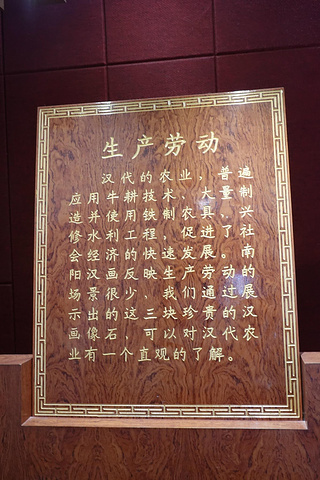 生产劳动
汉代的农业，普遍
应用牛耕技术，大量制
造并使用铁制农具，兴
修水利工程，促进了社
会经济的快速发展。南
阳汉画反映生产劳动的
场景很少，我们通过展
示出的这三块珍贵的汉
画像石，可以对汉代农
业有一个直观的了解。